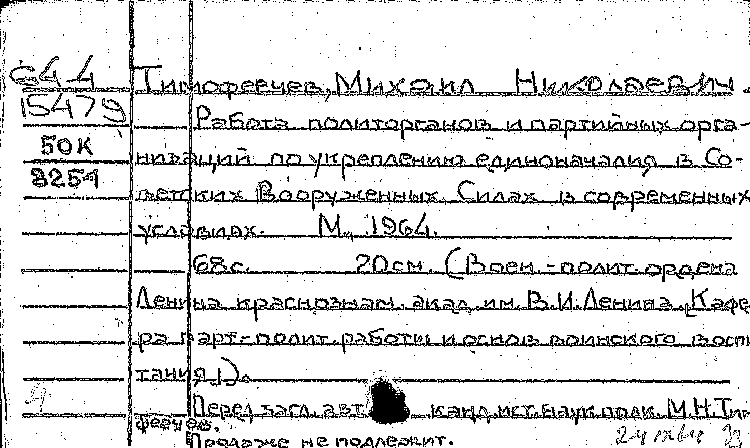 644
15479
50К
3254
Тимофеечев, Михаил Николаевич.
Работа политорганов и партийных орга-
низаций по укреплению единоначалия в Со-
ветских Вооруженных Силах в современных
условиях. М., 1964.
68 с. 20 см. (Воен.-полит. ордена
Ленина краснознам. акад. им. В.И. Ленина. Кафед
ра парт.-полит. работы и основ воинского воспи
тания.).
Перед загл. авт. канд. ист. наук полк. М.Н. Тим
феечев.
Продаже не подлежит.